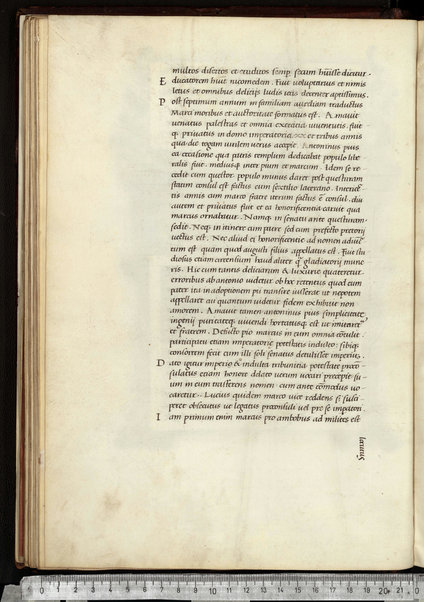 multos disertos et eruditos semp secum huisse dicitur.
E ducatorem huit nicomedem. Fuit voluptarius et nimis
letus et omnibus delicijs ludis iocis decenter aptissimus.
P ost septimum annum in familiam aureliam traductus
Marci moribus et auctoritate formatus est. Amauit
uenatus palestras et omnia exercitia iuuentutis. fuit
q. priuatus in domo imperatoria xx et tribus annis
qua die togam uirilem uerus accepit Antoninus pius
ea occasione qua patris templum dedicabat populo libe
ralis fuit. mediusq inter pium et marcum. Idem se re
cedit cum questor populo munus daret post questuram
statim consul est factus cum sextilio laterano. Interiec
tis annis cum marco fratre iterum factus e consul. diu
autem et priuatus fuit et ea honorificentia caruit qua
marcus ornabatur. Namq in senatu ante questuram
sedit. Neq in itinere cum patre sed cum prefecto pretorij
uectus est. Nec aliud ei honorificentie ad nomen adiunc
tum est quam quod augusti filius appellatus est. Fuit stu
diosus etiam circensium haud aliter q gladiatorij mune
ris. Hic cum tantis deliciarum & luxurie quateretur
erroribus ab antonio uidetur ob hoc retentus quod eum
pater ita in adoptionem pii transire iusserat ut nepotem
appellaret cui quantum uidetur fidem exhibuit non
amorem. Amauit tamen antoninus pius simplicitate
ingenij puritateq uiuendi hortatusq est ut imitaretur
et fratrem. Defucto pio marcus in eum omnia cotulit
participatu etiam imperatorie potestatis indulto: sibiq
consortem fecit cum illi soli senatus detulisset imperiu.
D ato igitur imperio & indulta tribunitia potestate proco
sulatus etiam honore delato uerum uocari precepit su-
um in eum trasferens nomen cum ante comodus uo
caretur. Lucius quidem marco uice reddens si susci
peret obsecutus ut legatus proconsuli uel pro se impatori.
I am primum enim marcus pro ambobus ad milites est